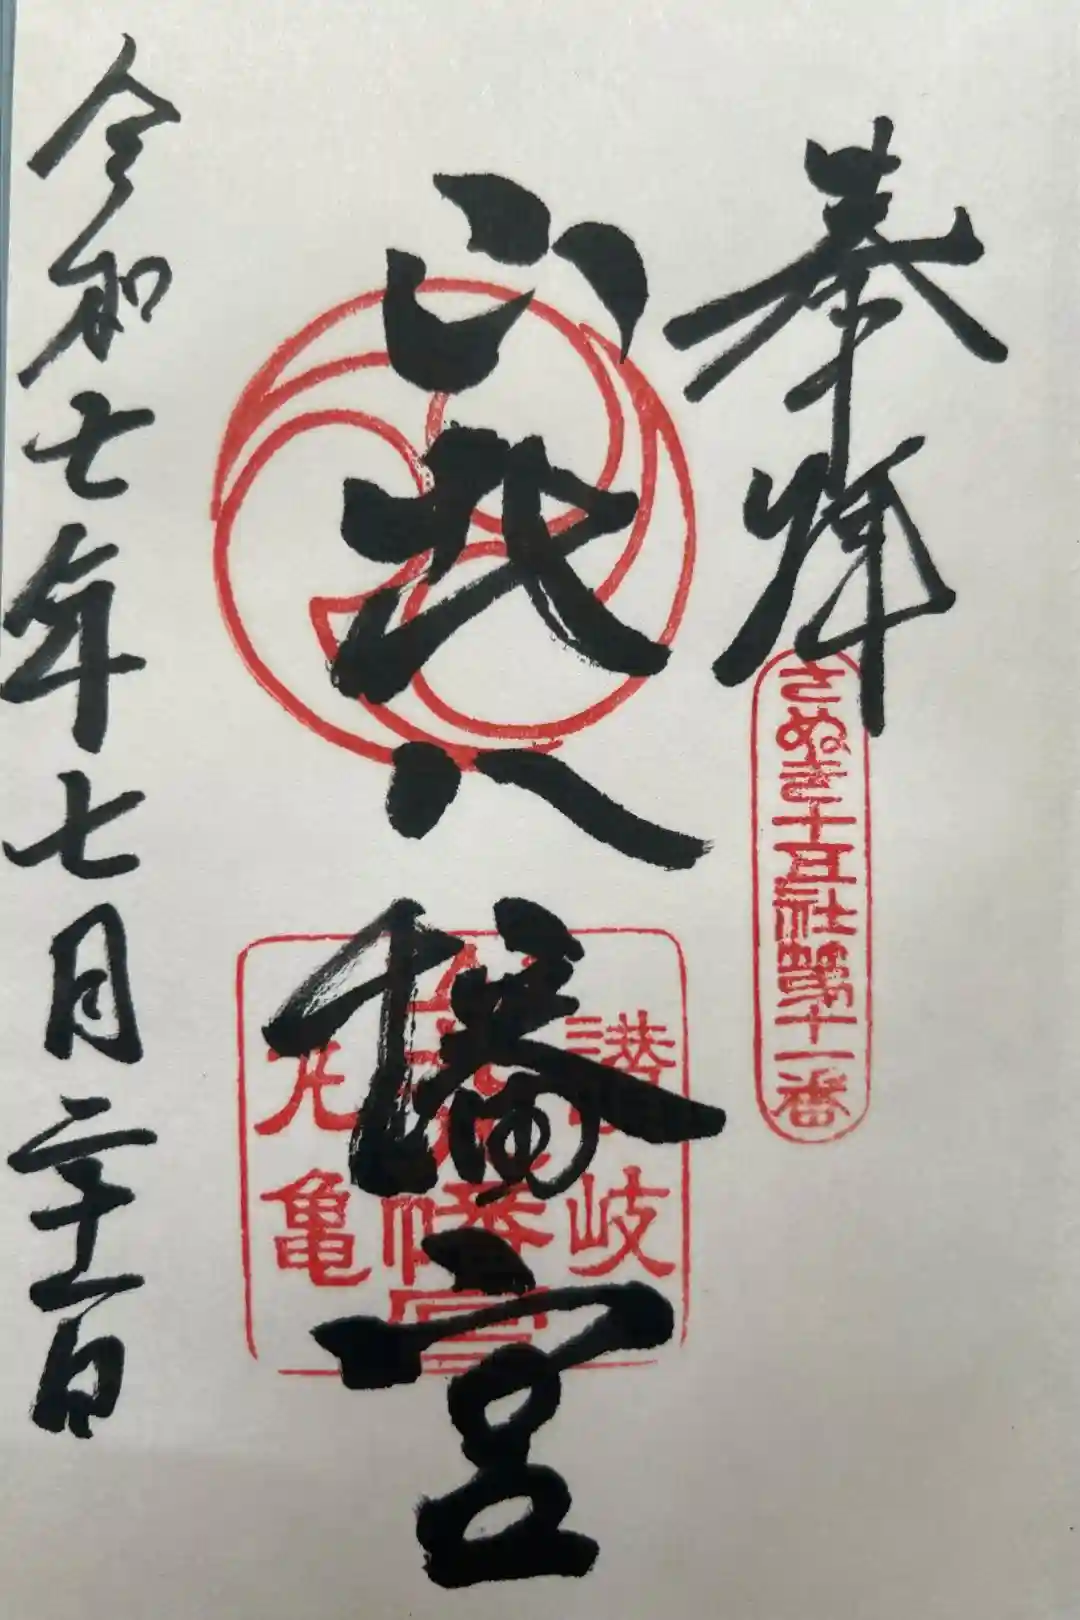 奉拝
さぬき十五社第十一番
山北八幡宮
讃岐
山北八幡宮
丸亀
令和七年七月二十一日